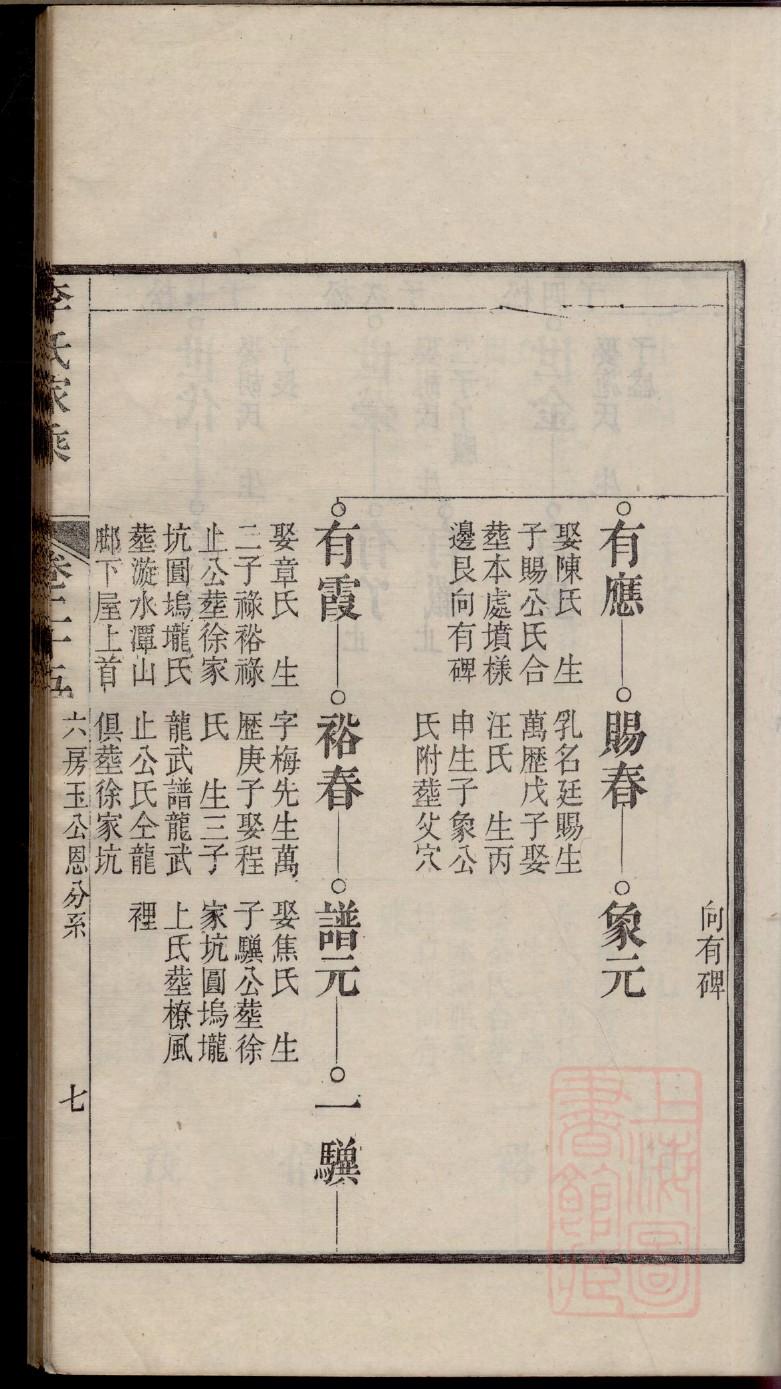 向有碑
有應
娶陳氏　生
子賜公氏合
塟本處墳樣
邊艮向有碑
賜春
乳名廷賜生
萬歷戊子娶
汪氏　生丙
申生子象公
氏附塟父穴
象元
有霞
娶章氏　生
二子祿裕祿
止公塟徐家
坑圓塢壠氏
塟漩水潭山
脚下屋上首
裕春
字梅先生萬
歷庚子娶程
氏　生三子
龍武譜龍武
止公氏仝龍
俱塟徐家坑
譜元
娶焦氏　生
子驥公塟徐
家坑圓塢壠
上氏塟橑風
裡
一驥
李氏家乘
卷二十五
六房玉公恩分系
七
上海圖
書館藏